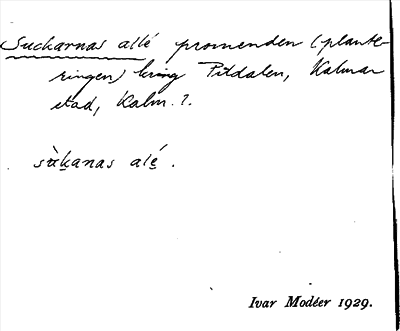 Suckarnas allé promenden (plante-
ringen) kring Pitdalen, Kalmar
stad, Kalm. l.
sùkanas alé .
Ivar Modéer 1929.